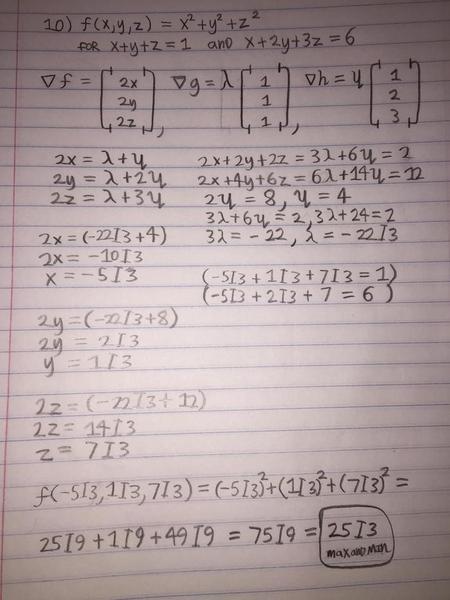 10) f(x,y,z) = x²+y²+z²
FOR x+y+z=1 and x+2y+3z=6
∇f = [2x 2y 2z], ∇g = λ [1 1 1], ∇h = μ [1 2 3]
2x = λ+μ 2x+2y+2z = 3λ+6μ = 2
2y = λ+2μ 2x+4y+6z = 6λ+14μ = 12
2z = λ+3μ 2μ = 8, μ = 4
3λ+6μ = 2, 3λ+24=2
2x = (-22/3+4) 3λ = -22, λ = -22/3
2x = -10/3
x = -5/3 (-5/3+1/3+7/3=1)
(-5/3+2/3+7=6)
2y = (-22/3+8)
2y = 2/3
y = 1/3
2z = (-22/3+12)
2z = 14/3
z = 7/3
f(-5/3,1/3,7/3) = (-5/3)²+(1/3)²+(7/3)² =
25/9+1/9+49/9 = 75/9 = 25/3
max and min